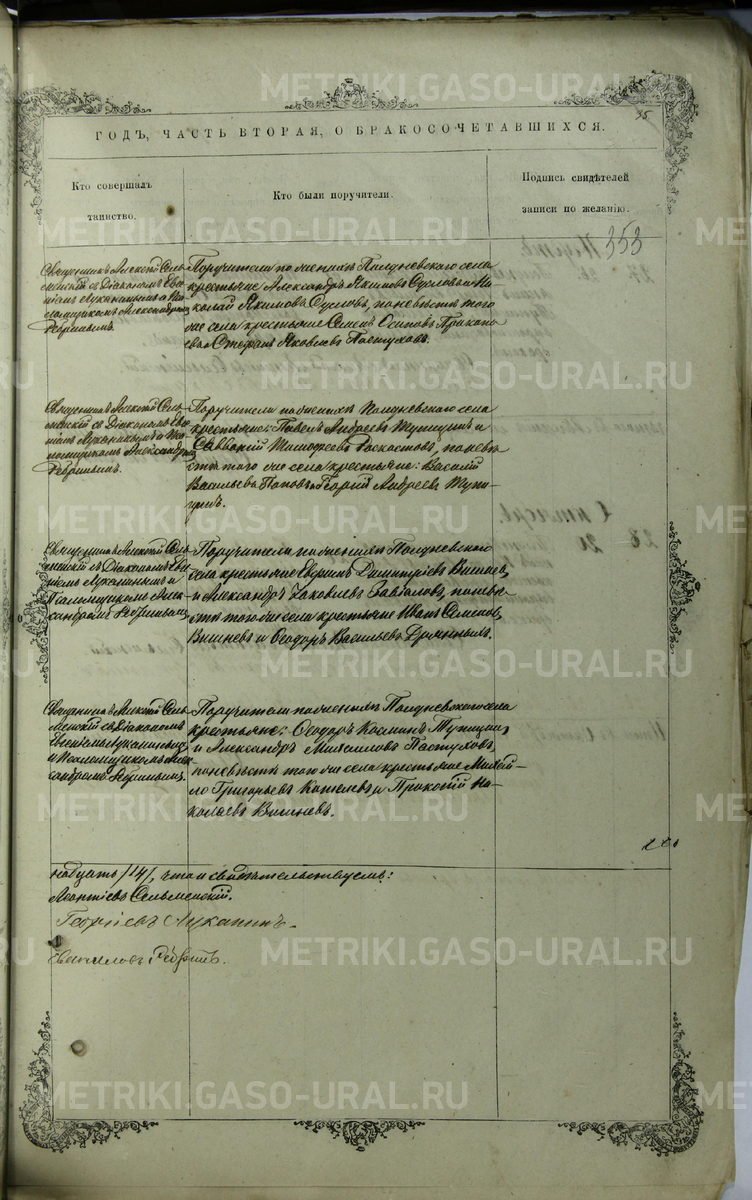 35
ГОДЪ, ЧАСТЬ ВТОРАЯ, О БРАКОСОЧЕТАВШИХСЯ.
Кто совершалъ
таинство.
Кто были поручители.
Подпись свидѣтелей
записи по желанію.
353
Священникъ Алексій Сель-
менскій съ Діакономъ Евг
ніемъ Луканинымъ и Пса
ломщикомъ Александромъ
Ребринымъ.
Поручители по женихѣ Полдневского села
крестьяне Александръ Якимовъ Сусловъ и Ни
колай Якимовъ Сусловъ, по невѣстѣ того
же села крестьяне Семенъ Осиповъ Прокопь
евъ и Стефанъ Яковлевъ Пастуховъ.
Священникъ Алексій Сель-
менскій съ Діакономъ Евг
ніемъ Луканинымъ и Пса
ломщикомъ Александромъ
Ребринымъ.
Поручители по женихѣ Полдневского села
крестьяне: Павелъ Андреевъ Тупицинъ и
Савватій Тимофеевъ, по невѣ
стѣ того же села крестьяне: Василій
Васильевъ Поповъ и Георгій Андреевъ Тупи-
цинъ.
Священникъ Алексій Сель
менскій съ Діакономъ Евг
ніемъ Луканинымъ и
Псаломщикомъ Алек
сандромъ Ребринымъ
Поручители по женихѣ Полдневского
села крестьяне Димитріевъ Вишнев,
и Александръ Яковлевъ Завьяловъ, по невѣ
стѣ того же села крестьяне Иванъ Семенов
Вишневъ и Ѳеодоръ Васильевъ
Священникъ Алексій Сель
менскій съ Діакономъ
Евгеніемъ Луканинымъ
и Псаломщикомъ Алек
сандромъ Ребринымъ.
Поручители по женихѣ Полдневского села
крестьяне: Ѳеодоръ Косминъ Тупицинъ
и Александръ Михаиловъ Пастуховъ,
по невѣстѣ того же села крестьяне Михай-
ло Григорьевъ и Прокопій Ни-
колаевъ Вишневъ.
надцать /14/, что и свидѣтельствуемъ:
Леонтіевъ Сельменскій.
Георгіевъ Луканинъ.
METRIKI.GASO-URAL.RU